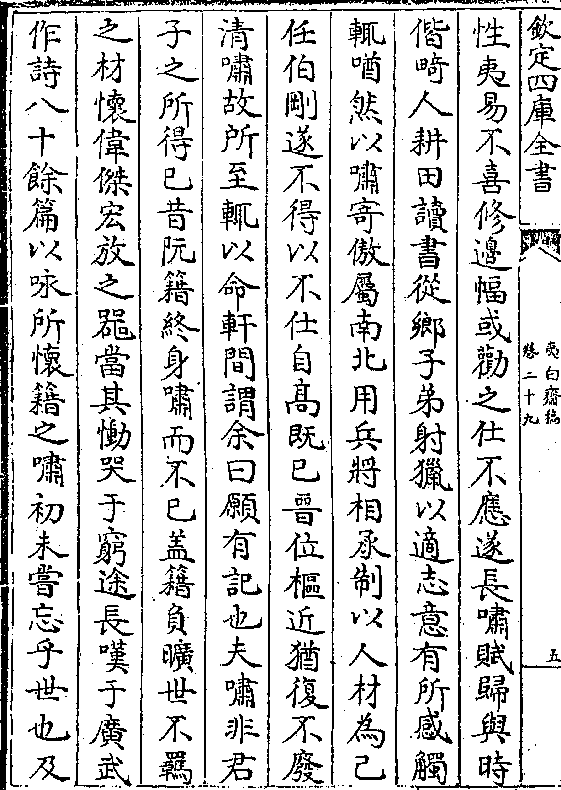 欽定四庫全書
夷白齋稿
卷二十九
五
性夷易不喜修邊幅或勸之仕不應遂長嘯賦歸與時
偕畸人耕田讀書從鄉子弟射獵以適志意有所感觸
輒喟然以嘯寄傲屬南北用兵將相承制以人材為己
任伯剛遂不得以不仕自高既已晉位樞近猶復不廢
清嘯故所至輒以命軒間謂余曰願有記也夫嘯非君
子之所得已昔阮籍終身嘯而不已蓋籍負曠世不羈
之材懷偉傑宏放之噐當其慟哭于窮途長嘆于廣武
作詩八十餘篇以咏所懷籍之嘯初未嘗忘乎世也及